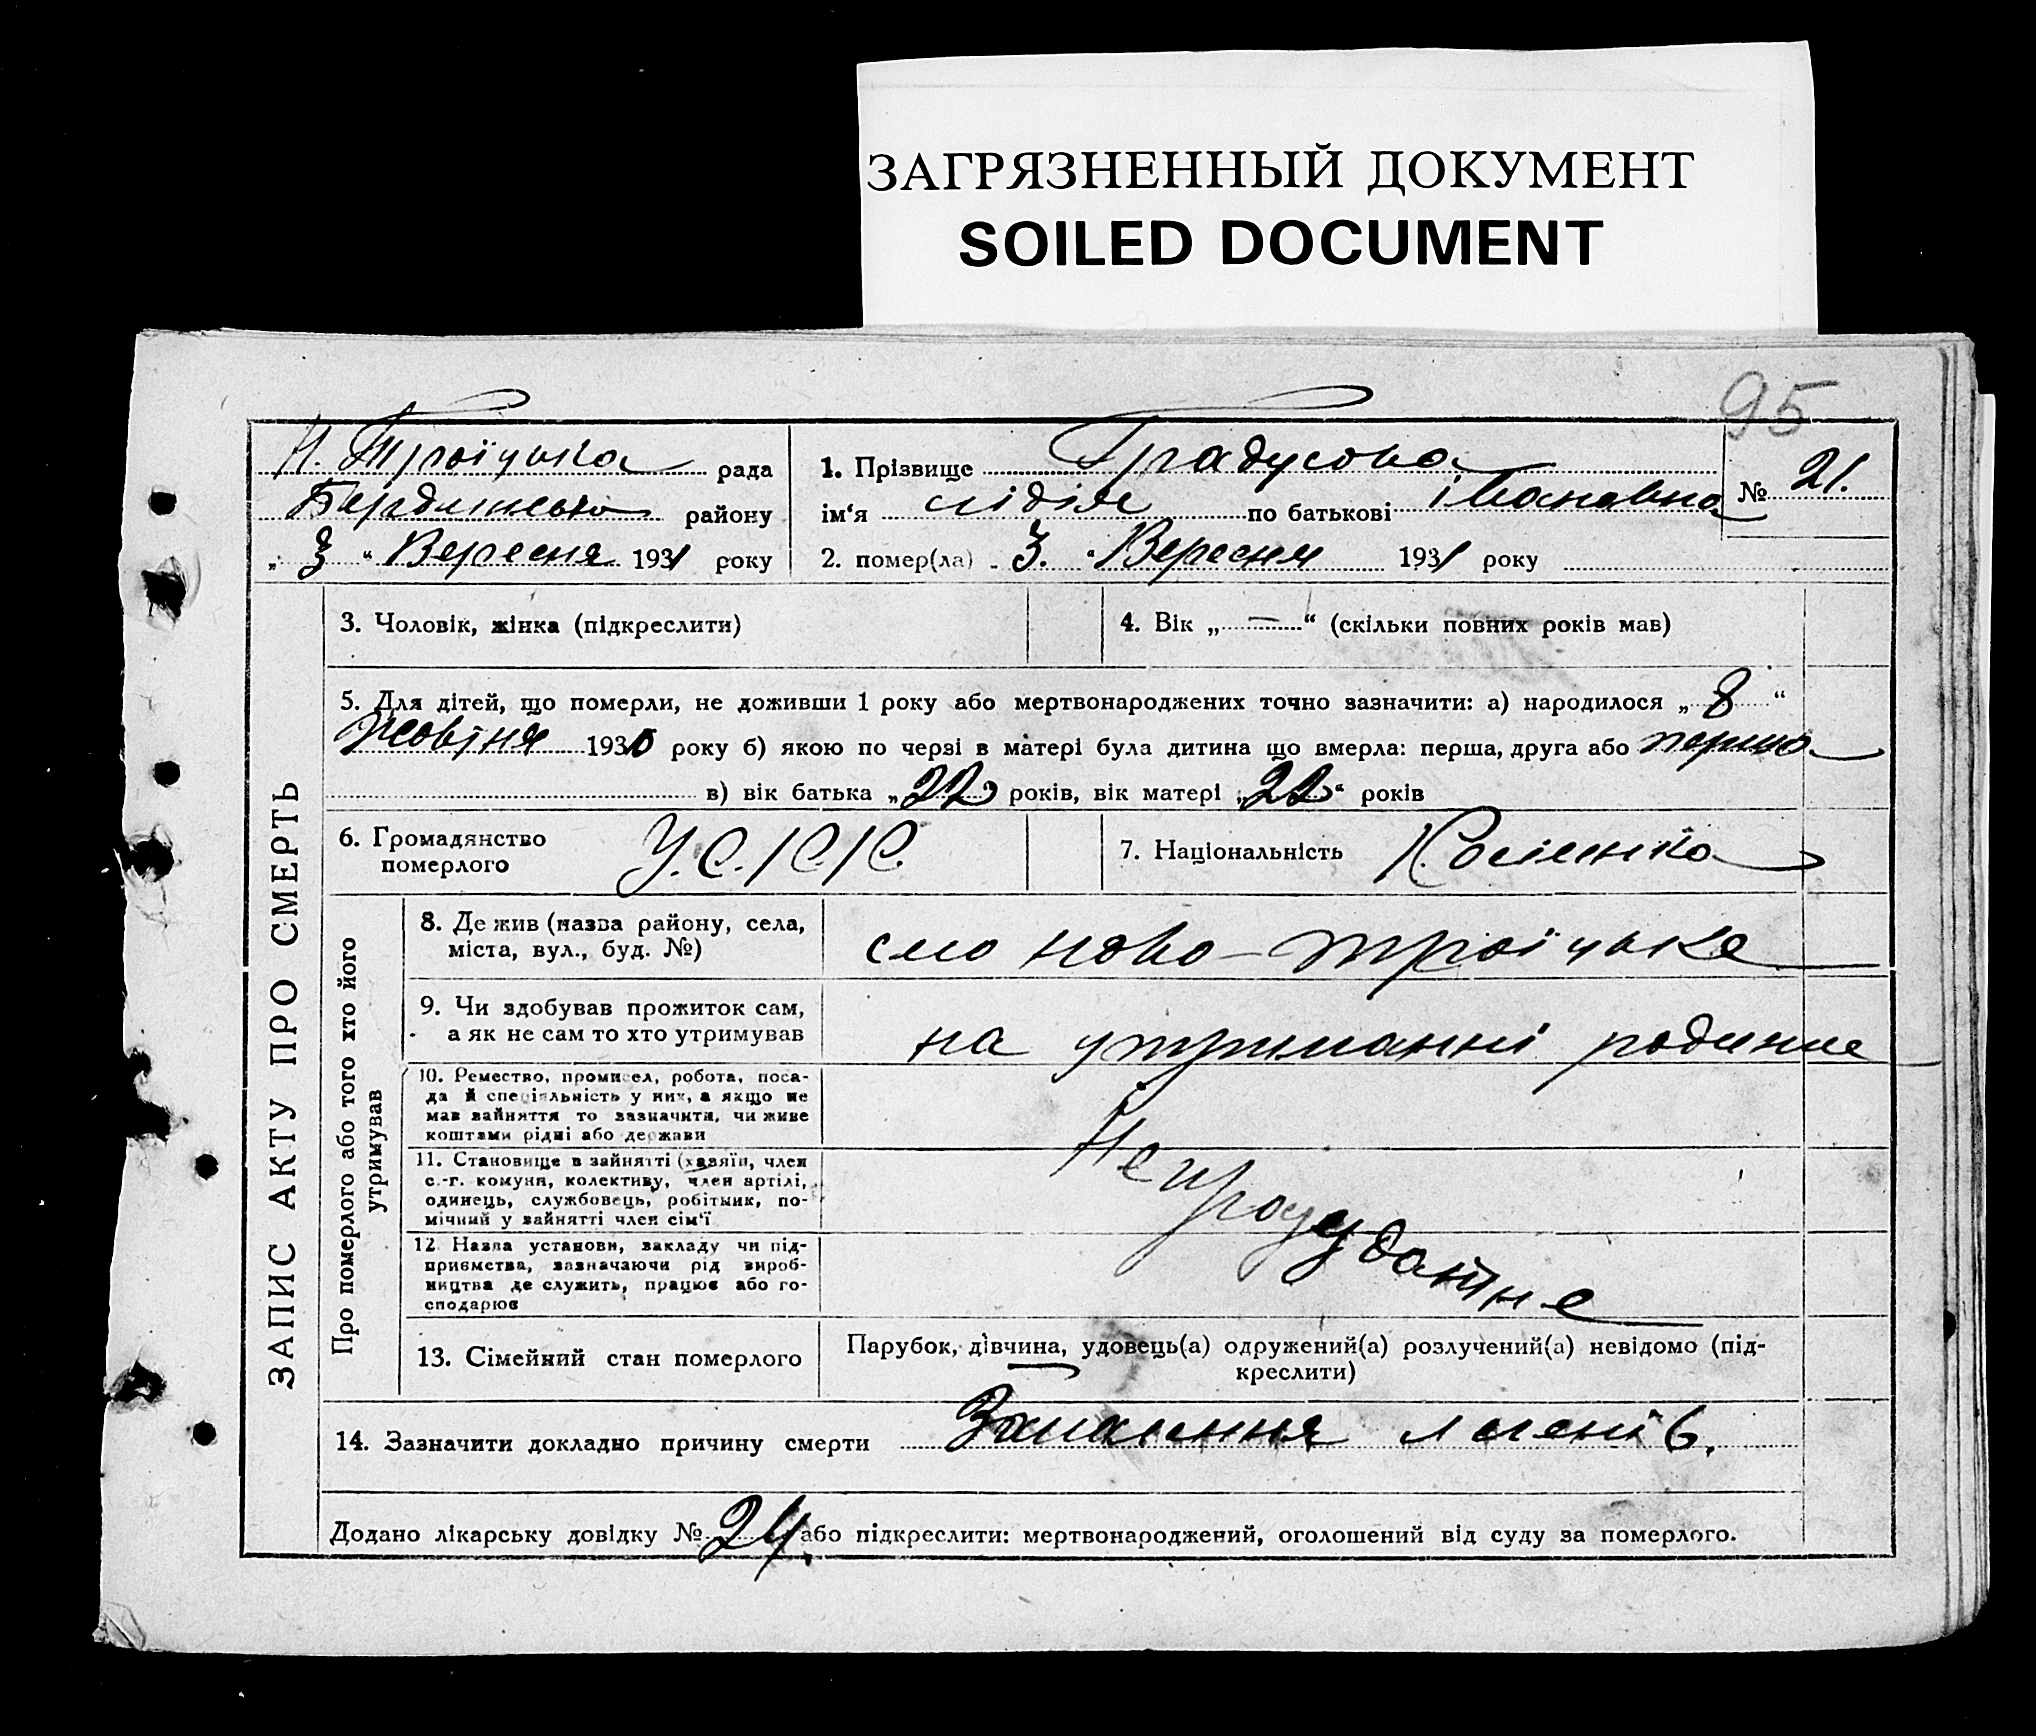 ЗАГРЯЗНЕННЫЙ ДОКУМЕНТ
SOILED DOCUMENT
95
Н. Троїцька рада
Бердянсько району
„ 3 “ Вересня 1931 року
1. Прізвище Градусова
ім‘я Лідія по батькові Івановна
№ 21.
2. помер(ла) 3. Вересня 1931 року
ЗАПИС АКТУ ПРО СМЕРТЬ
3. Чоловік, жінка (підкреслити)
4. Вік „ — “ (скільки повних років мав)
5. Для дітей, що померли, не доживши 1 року або мертвонароджених точно зазначити: а) народилося „ 8 “
Жовтня 1930 року б) якою по черзі в матері була дитина що вмерла: перша, друга або перша
в) вік батька „ 22 “ років, вік матері „ 22 “ років
6. Громадянство
померлого
У.С.Р.Р.
7. Національність
Про померлого або того хто його
утримував
8. Де жив (назва району, села,
міста, вул., буд. №)
село Ново-Троїцьке
9. Чи здобував прожиток сам,
а як не сам то хто утримував
на утриманні родине
10. Ремество, промисел, робота, поса-
да й спеціяльність у них, а якщо не
мав зайняття то зазначити, чи живе
коштами рідні або держави
11. Становище в зайнятті (хазяїн, член
с.-г. комуни, колективу, член артілі,
одинець, службовець, робітник, по-
мічний у зайнятті член сім‘ї
12. Назва установи, закладу чи під-
приємства, зазначаючи рід вироб-
ництва де служить, працює або го-
сподарює
13. Сімейний стан померлого
Парубок, дівчина, удовець(а) одружений(а) розлучений(а) невідомо (під-
креслити)
14. Зазначити докладно причину смерти Запалення легенів.
Додано лікарську довідку № 24. або підкреслити: мертвонароджений, оголошений від суду за померлого.